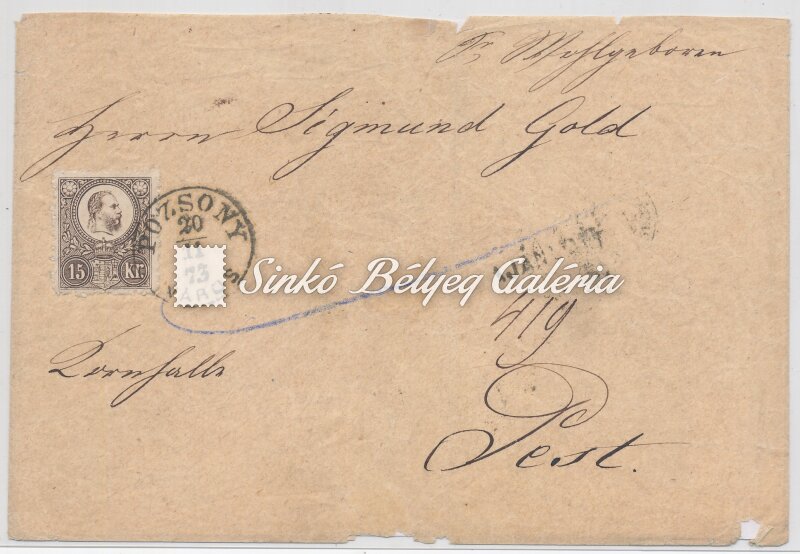 Sr Wohlgeboren
Herrn Sigmund Gold
15 Kr.
POZSONY
20
11
73
VÁROS
Sinkó Bélyeg Galéria
419
Kornhalle
Pest.